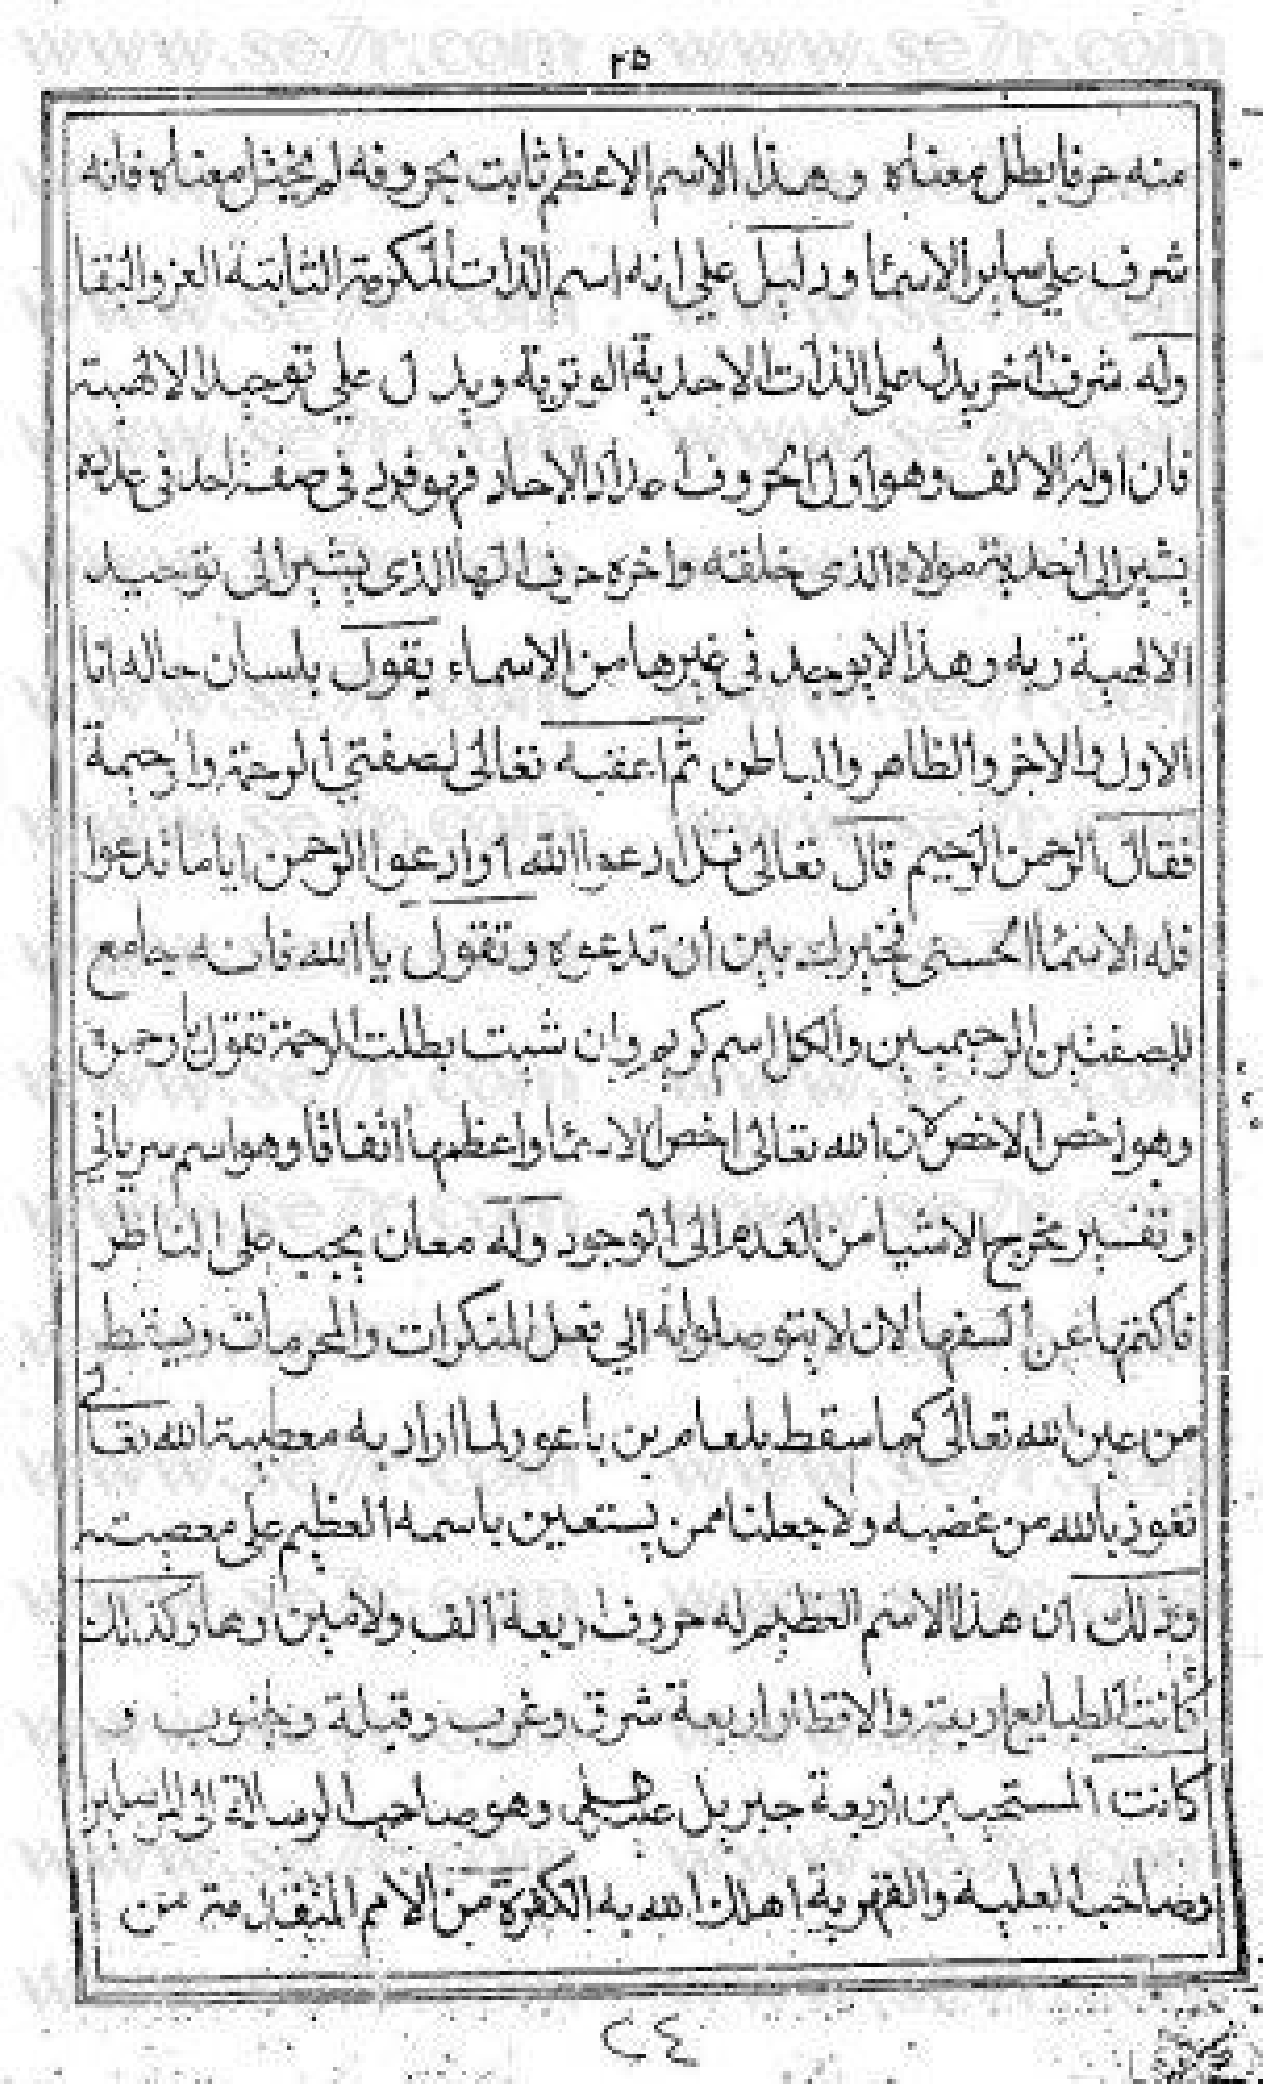 ٢٥
منه حرفا بطل معناه وهذا الاسم الاعظم ثابت بحروفه لم يختل معناه فانه
شرف على ساير الاسما ودليل على انه اسم الذات المكرمة الثابتة العز والبقا
وله شرف اخر يدل على الذات الاحدية الوترية ويدل على توحيد الالهية
فان اوله الالف وهو اول الحروف اعداد الاحاد فهو فرد في صفته احد في عدده
يشير الى احدية مولاه الذى خلقه واخره حرف الها الذى يشير الى توحيد
الالهية ربه وهذا لا يوجد في غيرها من الاسماء يقول بلسان حاله انا
الاول والاخر والظاهر والباطن ثم اعقبه تعالى لصفتي الرحمة والرحيمة
فقال الرحمن الرحيم قال تعالى قل ادعوا الله اوادعوا الرحمن اياما تدعوا
فله الاسما الحسنى فخيرك بين ان تدعوه وتقول يا الله فانه جامع
للصفتين الرحيميين والكل اسم كريم وان شيت بطلت الرحمة تقول يا رحمن
وهو اخص الاخص لان الله تعالى اخص الاسما واعظمها اتفاقا وهو اسم سرياني
وتفسير مخرج الاشيا من العدم الى الوجود وله معان يجب على الناظر
فاكتمها عن السفها لان لا يتوصلوا به الي فعل المنكرات والمحرمات ويسقط
من عين الله تعالى كما سقط بلعام بن باعور لما اراد به معطية الله تعالى
نعوذ بالله من غضبه ولا جعلنا ممن يستعين باسمه العظيم على معصيته
وذلك ان هذا الاسم العظيم له حروف ربعة الف ولامين وها وكذلك
كانت الطبايع اربعة والاقطار اربعة شرق وغرب وقبلة وجنوب و
كانت المستحبين اربعة جبريل عليه السلم وهو صاحب الرسالة الى
وصاحب الغلبة والقهرية اهلك الله به الكفرة من الامم المتقدمة من
٢٤
www.se7r.com www.se7r.com